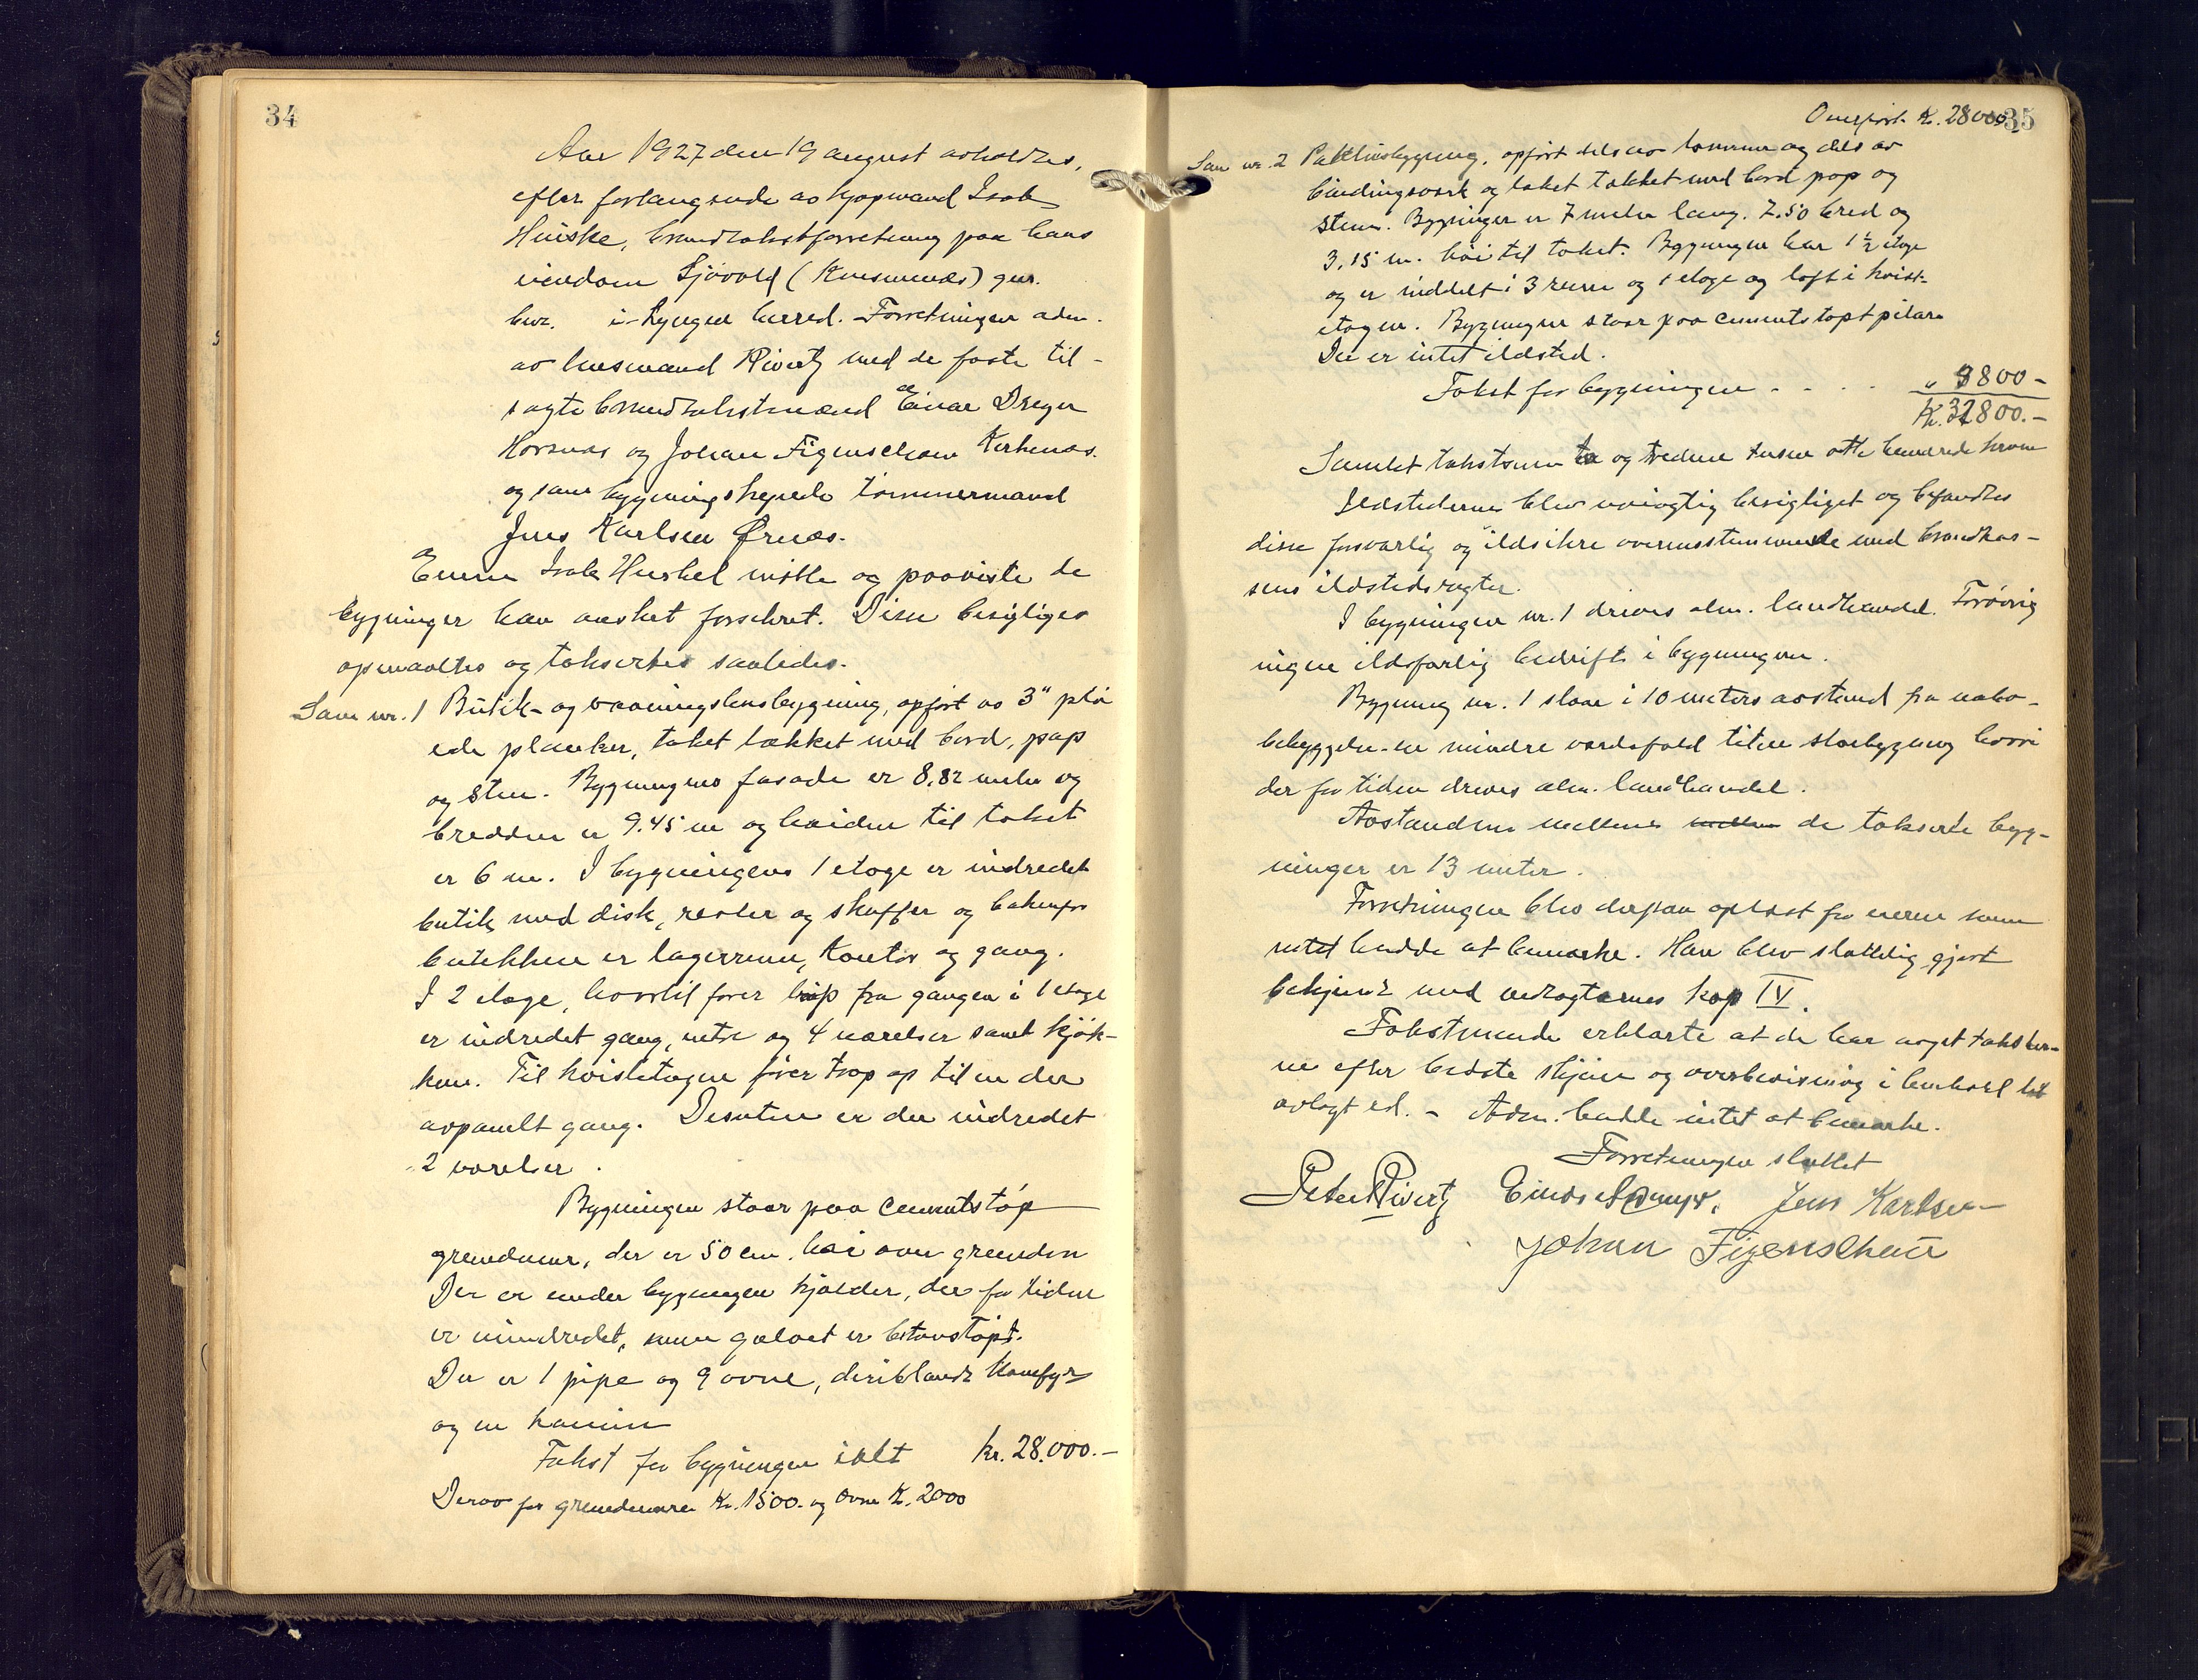 34
Aar 1927 den 19 august avholdtes,
efter forlangende av kjøpmand Isak
Heiske, brandtakstforretning paa hans
eiendom Sjøvold (Kvesmenes) gnr.
bnr. i Lyngen herred. Forretningen adm.
av lensmand Rivertz med de faste til-
sagte brandtakstmænd Einar Dreyer
Horsnæs og Johan Figenschou Kerhenæs.
og som bygningskyndig tømmermand
Jens Karlsen Ørnæs.
Eieren Isak Heiskel møtte og paaviste de
bygninger han ønsket forsikret. Disse besigtiges
opmaaltes og takserkes saaledes.
Sam nr. 1 Butik- og vaaningshusbygning, opført av 3" plöi
ede planker, taket tækket med bord, pap
og sten. Bygningens fasade er 8.82 meter og
bredden er 9.45 m og høiden til taket
er 6 m. I bygningens 1 etage er indredet
butik med disk, reoler og skuffer og bakenfor
butikken er lagerrum, kontor og gang.
I 2 etage, hvortil fører trap fra gangen i 1 etage
er indredet gang, entre og 4 værelser samt kjøk-
ken. Til kvistetagen fører trap op til en der
avpanelt gang. Desuten er der indredet
2 værelser.
Bygningen staar paa cementstøp
grundmur, der er 50 cm. høi over grunden
Der er under bygningen kjælder, der for tiden
er uindredet, men gulvet er betonstøpt.
Der er 1 pipe og 9 ovne, deriblandt komfyr
og en kamin
Takst for bygningen ialt kr. 28.000.-
Derav for grundmuren Kr. 1500.- og ovne Kr. 2000
35
Overført Kr. 28000
Sam nr. 2 Pakhusbygning, opført dels av tømmer og dels av
bindingsverk og taket tækket med bord pap og
sten. Bygningen er 7 meter lang. 7.50 bred og
3,15 m. høi til taket. Bygningen har 1 1/2 etage
og er inddelt i 3 rum og 1 etage og loft i kvist-
etagen. Bygningen staar paa cementstøpt pilare
Der er intet ildsted.
Takst for bygningen - . . . " 3800 -
Kr. 31800.-
Samlet takstsum en og tredive tusen otte hundrede kroner
Ildstederne blev nøiagtig besigtiget og befandtes
disse forsvarlig og ildsikre overensstemmende med brandkas-
sens ildstedsregler.
I bygningen nr. 1 drives alm. landhandel. Forøvrig
ingen ildsfarlig bedrift i bygningen.
Bygning nr. 1 staar i 10 meters avstand fra nabo-
bebyggelse en mindre værdifuld liten storbygning hvori
der for tiden drives alm. landhandel.
Avstanden mellem mellem de takserte byg-
ninger er 13 meter.
Forretningen blev derpaa oplæst for eieren som
intet hadde at bemærke. Han blev skattelig gjort
bekjendt med vedtægternes kap IV.
Takstmænde erklærte at de har avgit takster-
ne efter bedste skjøn og overbevisning i henhold til
avlagt ed. - Adm. hadde intet at bemærke.
Forretningen sluttet
Peter Rivertz Jens Karlsen
Johan Figenschau